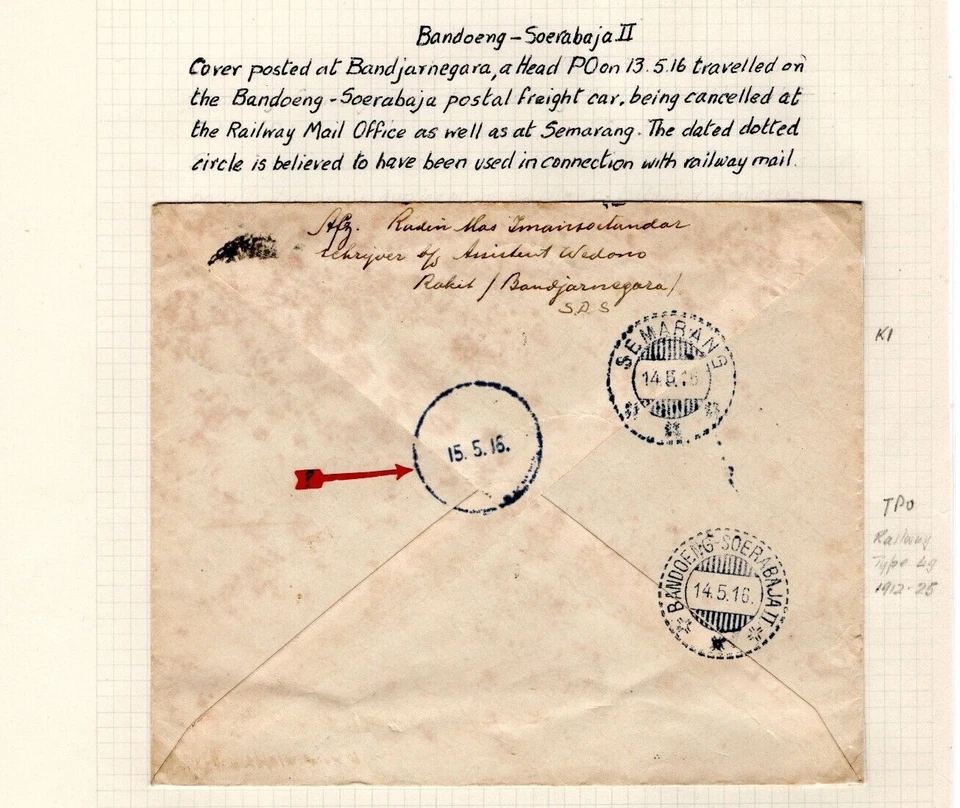 Bandoeng - Soerabaja II
Cover posted at Bandjarnegara, a Head PO on 13.5.16 travelled on
the Bandoeng - Soerabaja postal freight car, being cancelled at
the Railway Mail Office as well as at Semarang. The dated dotted
circle is believed to have been used in connection with railway mail.
Afz. Raden Mas
Schrijver b/g Assistent Wedono
Rakit / Bandjarnegara /
S.D.S
SEMARANG
14.5.16
K1
15.5.16.
?
TPO
Railway
Type Lg
1912-25
BANDOENG-SOERABAJA II
14.5.16.